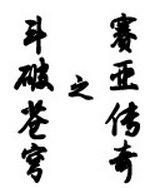 斗破苍穹
之
赛亚传奇